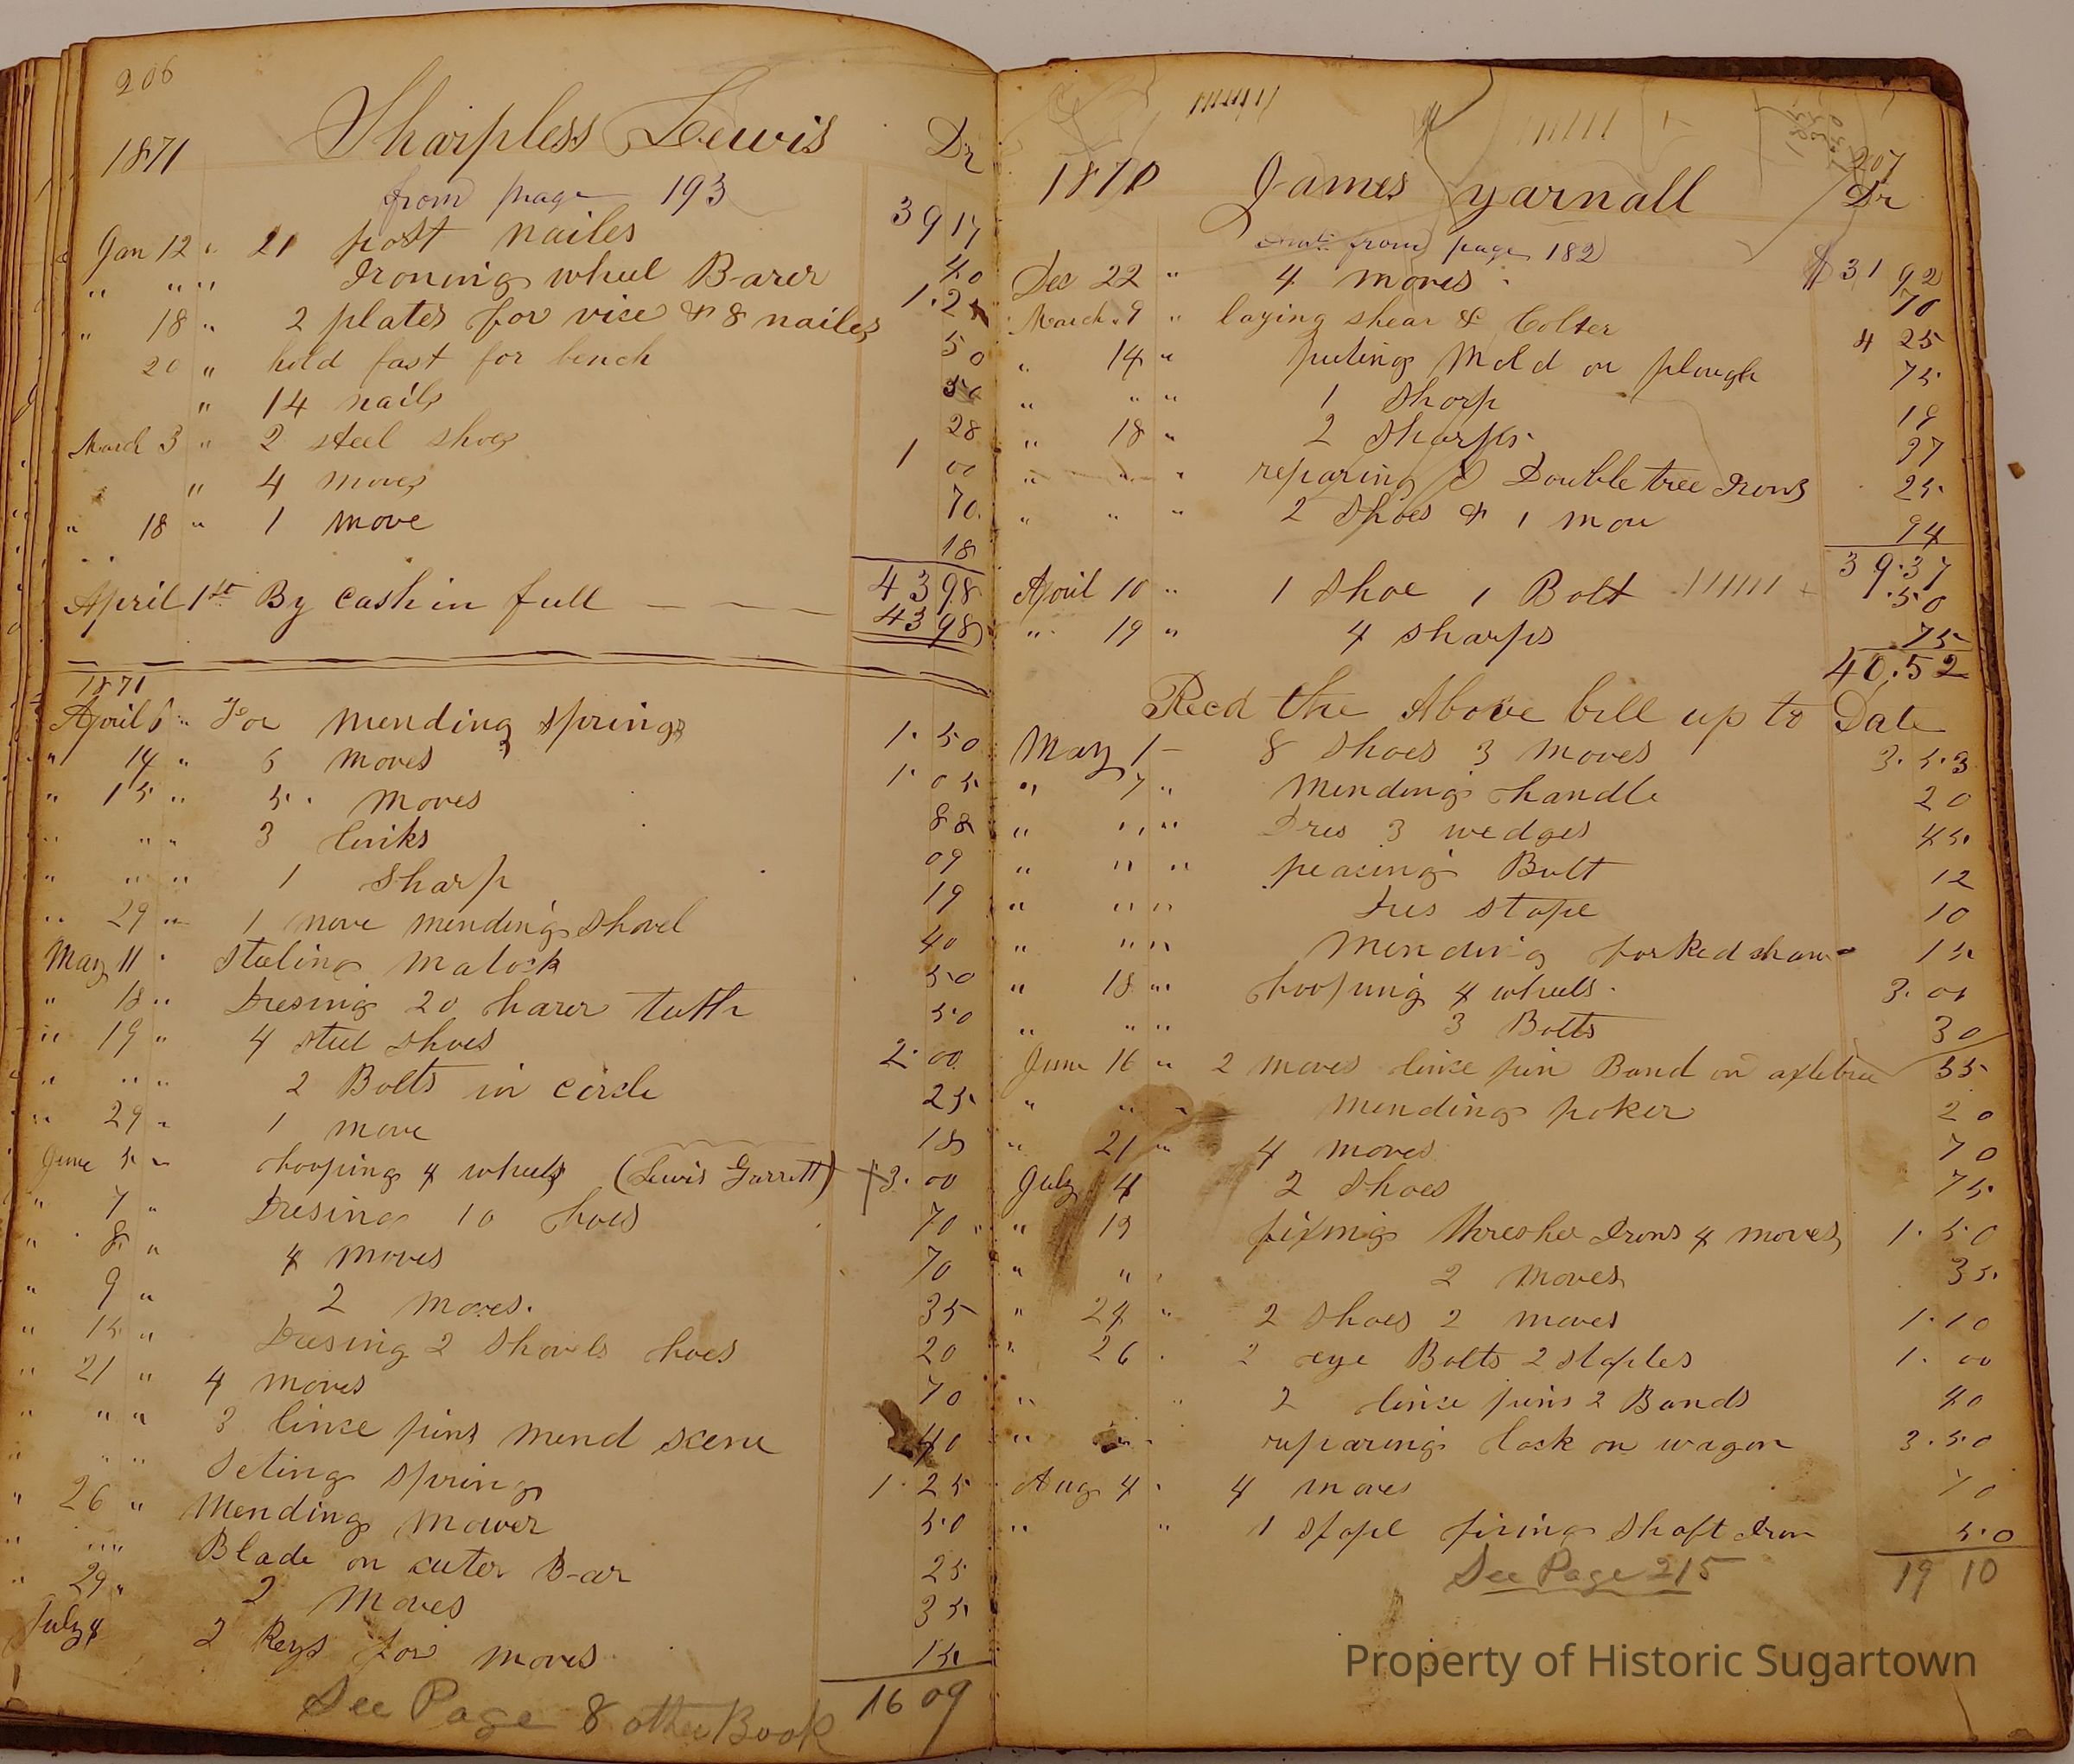 206
1871 Sharpless Lewis Dr
from page 193 39 17
Jan 12 " 21 post nailes 40
" " " Ironing wheel Barer 1.25
" 18 " 2 plates for vice & 8 nailes 50
20 " hold fast for bench 50
" 14 nails 28
March 3 " 2 steel shoes 1 00
" 4 moves 70
" 18 " 1 move 18
43 98
April 1st By cash in full 43 98
1871
April 6 " For mending springs 1.50
" 14 " 6 moves 1.05
" 15 " 5 moves 88
" " " 3 links 09
" " " 1 Sharp 19
" 29 " 1 move mending shovel 40
May 11 " Steeling matock 50
" 18 " Dresing 20 harer teeth 50
" 19 " 4 steel shoes 2.00
" " " 2 Bolts in circle 25
" 29 " 1 move 18
June 5 " hooping 4 wheels (Lewis Garrett) 3.00
" 7 " Dresing 10 hoes 70
" 8 " 4 moves 70
" 9 " 2 moves 35
" 15 " Dresing 2 shovels hoes 20
" 21 " 4 moves 70
" " " 3 lince pins mend 40
" " " Seting spring 1.25
" 26 " Mending mower 50
" " " Blade on cuter Bar 25
" 29 " 2 moves 35
July 4 2 Keys for moves 15
16 09
See Page 8 other Book
207
1870 James Yarnall Dr
from page 182 $31 92
Dec 22 " 4 moves 70
March 9 " laying shear & Colter 4 25
" 14 " puting Mold on plough 75
" " " 1 Sharp 19
" 18 " 2 Sharps 37
" " " reparing Doubletree Irons 25
" " " 2 Shoes & 1 move 94
39.37
April 10 " 1 Shoe 1 Bolt .50
" 19 " 4 sharps 75
40.52
Recd the Above bill up to Date
May 1 - 8 Shoes 3 moves 3.53
" 7 " Mending handle 20
" " " Dres 3 wedges 45
" " " peacing Bolt 12
" " " Dres stape 10
" " " Mending forked 15
" 18 " hooping 4 wheels 3.00
" " " 3 Bolts 30
June 16 " 2 moves lince pin Band on axletree 55
" " " mending poker 20
" 21 " 4 moves 70
July 4 2 Shoes 75
" 19 fixing thresher Irons 4 moves 1.50
" " " 2 moves 35
" 24 " 2 Shoes 2 moves 1.10
" 26 " 2 eye Bolts 2 staples 1.00
" " 2 lince pins 2 Bands 40
" " reparing lock on wagon 3.50
Aug 4 " 4 moves 70
" " 1 stapl fixing shaft Iron 50
See Page 215 19 10
Property of Historic Sugartown